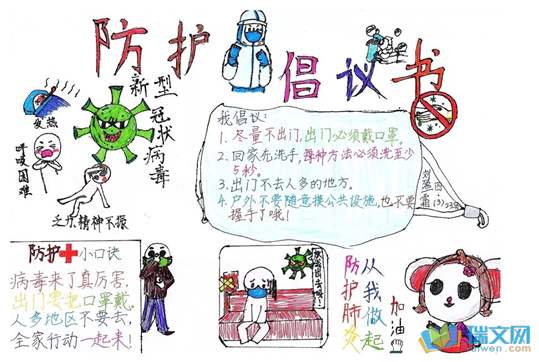 防护倡议书
新型冠状病毒
发热
呼吸困难
乏力精神不振
我倡议:
1. 尽量不出门,出门必须戴口罩。
2. 回家先洗手,每种方法必须洗至少
5秒。
3. 出门不去人多的地方。
4. 户外不要随意摸公共设施,也不要
握手了哦!
防护小口诀
病毒来了真厉害,
出门需把口罩戴,
人多地区不要去,
全家行动一起来!
防护肺炎
从我做起
加油
瑞文网